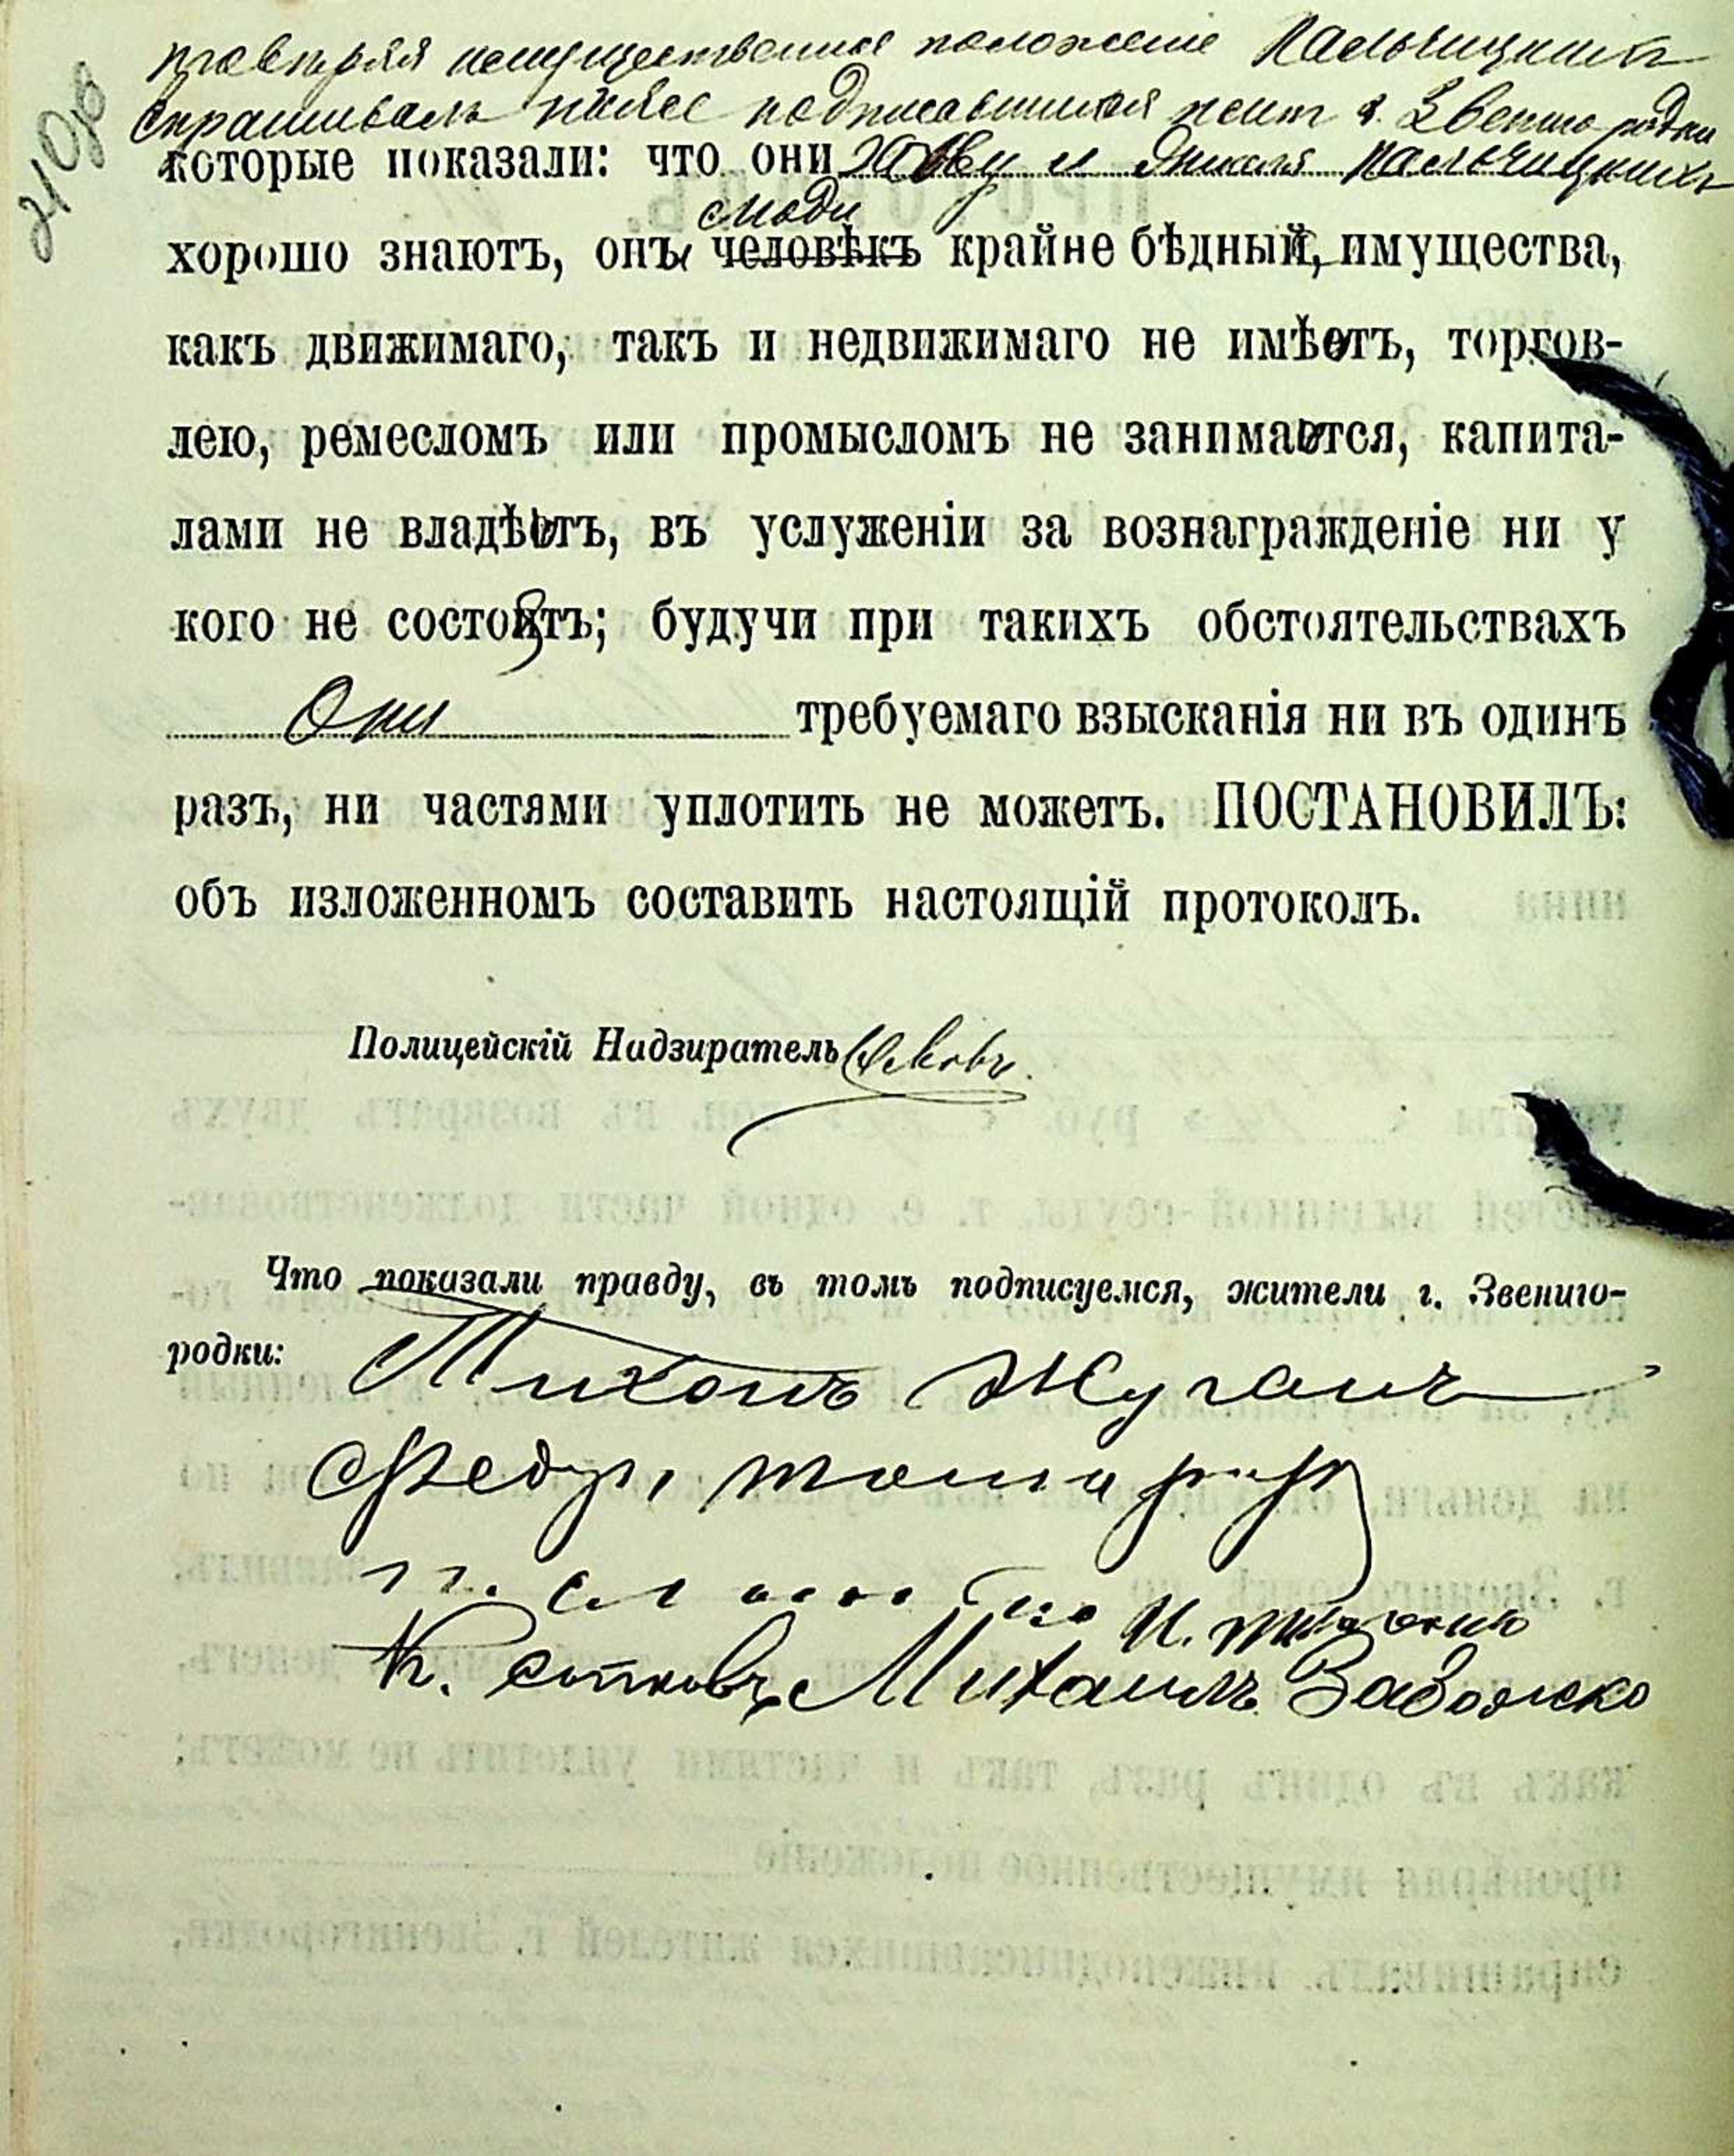 провѣряя имущественное положеніе Пальчицкихъ
спрашивалъ ниже подписавшихся жит г. Звенигородки
которые показали: что они и Пальчицкихъ
люди
хорошо знаютъ, они человѣкъ крайне бѣдный, имущества,
какъ движимаго, такъ и недвижимаго не имѣютъ, торгов-
лею, ремесломъ или промысломъ не занимаются, капита-
лами не владѣютъ, въ услуженіи за вознагражденіе ни у
кого не состоятъ; будучи при такихъ обстоятельствахъ
Они требуемаго взысканія ни въ одинъ
разъ, ни частями уплотить не можетъ. ПОСТАНОВИЛЪ:
объ изложенномъ составить настоящій протоколъ.
Полицейскій Надзиратель
Что показали правду, въ томъ подписуемся, жители г. Звениго-
родки:
Тихонъ Жуганъ
Федор
К. Михаилъ